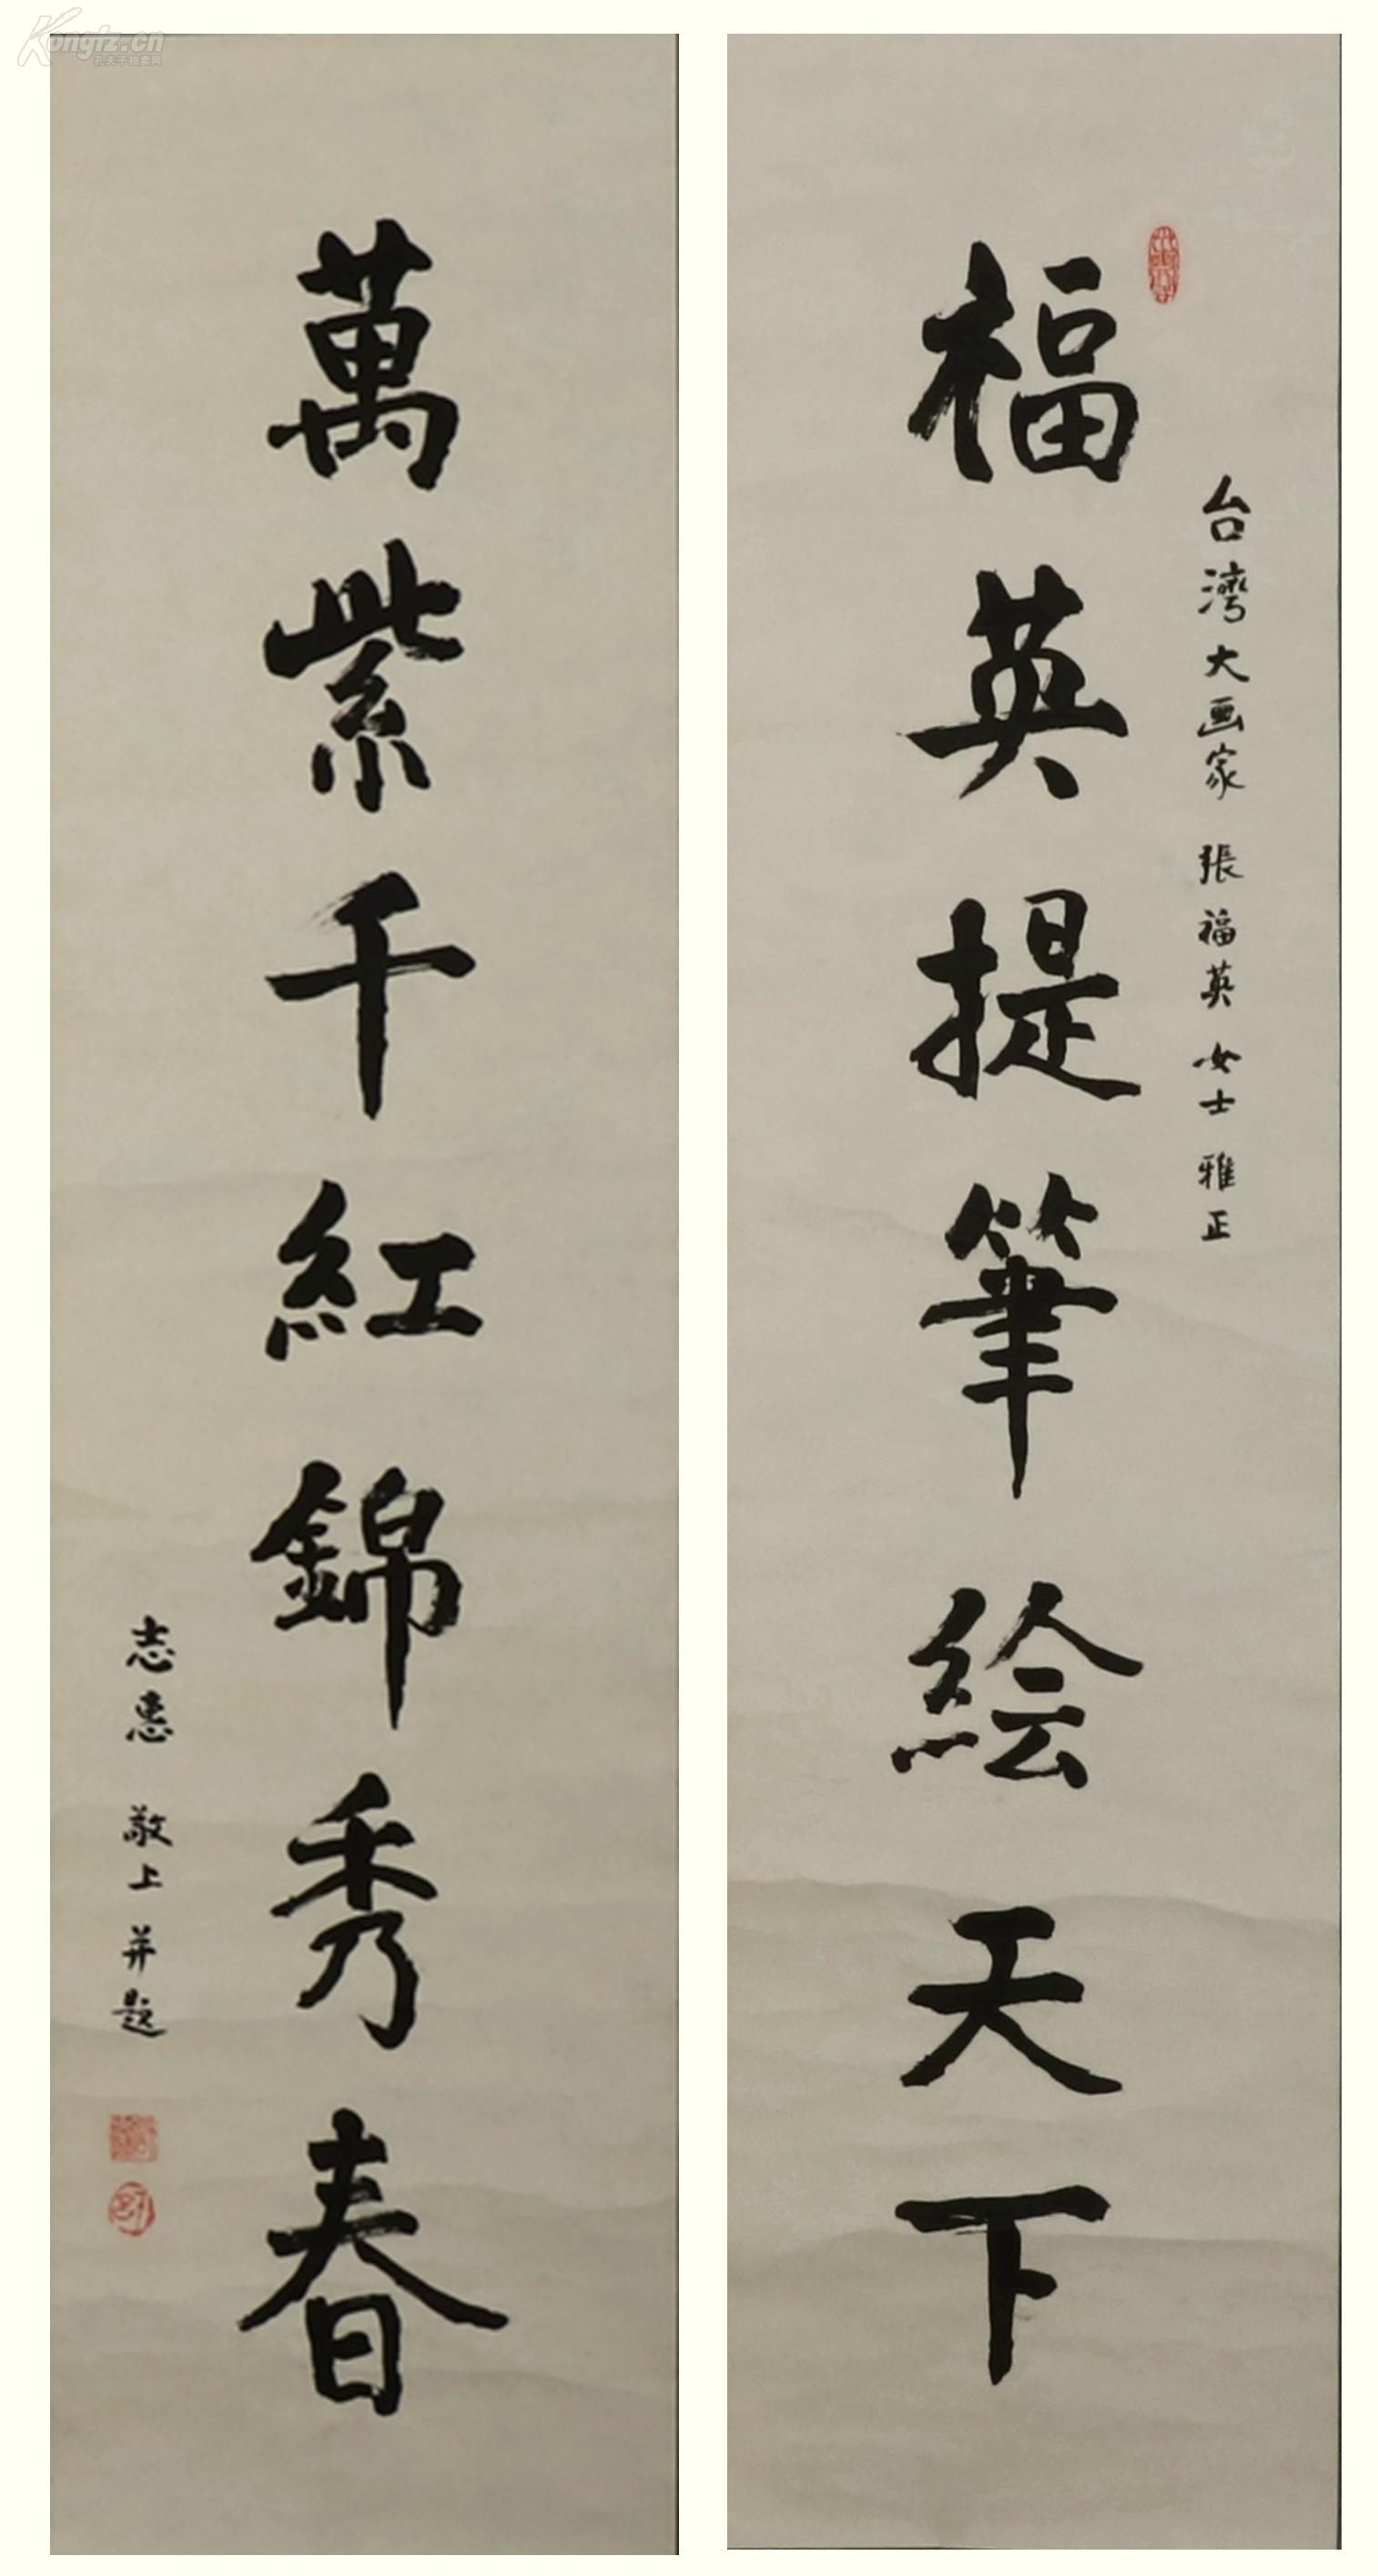 台湾大画家 張福英 女士 雅正
福英提筆绘天下
萬紫千紅錦秀春
志惠 敬上并题
Kongfz.cn
孔夫子拍卖网